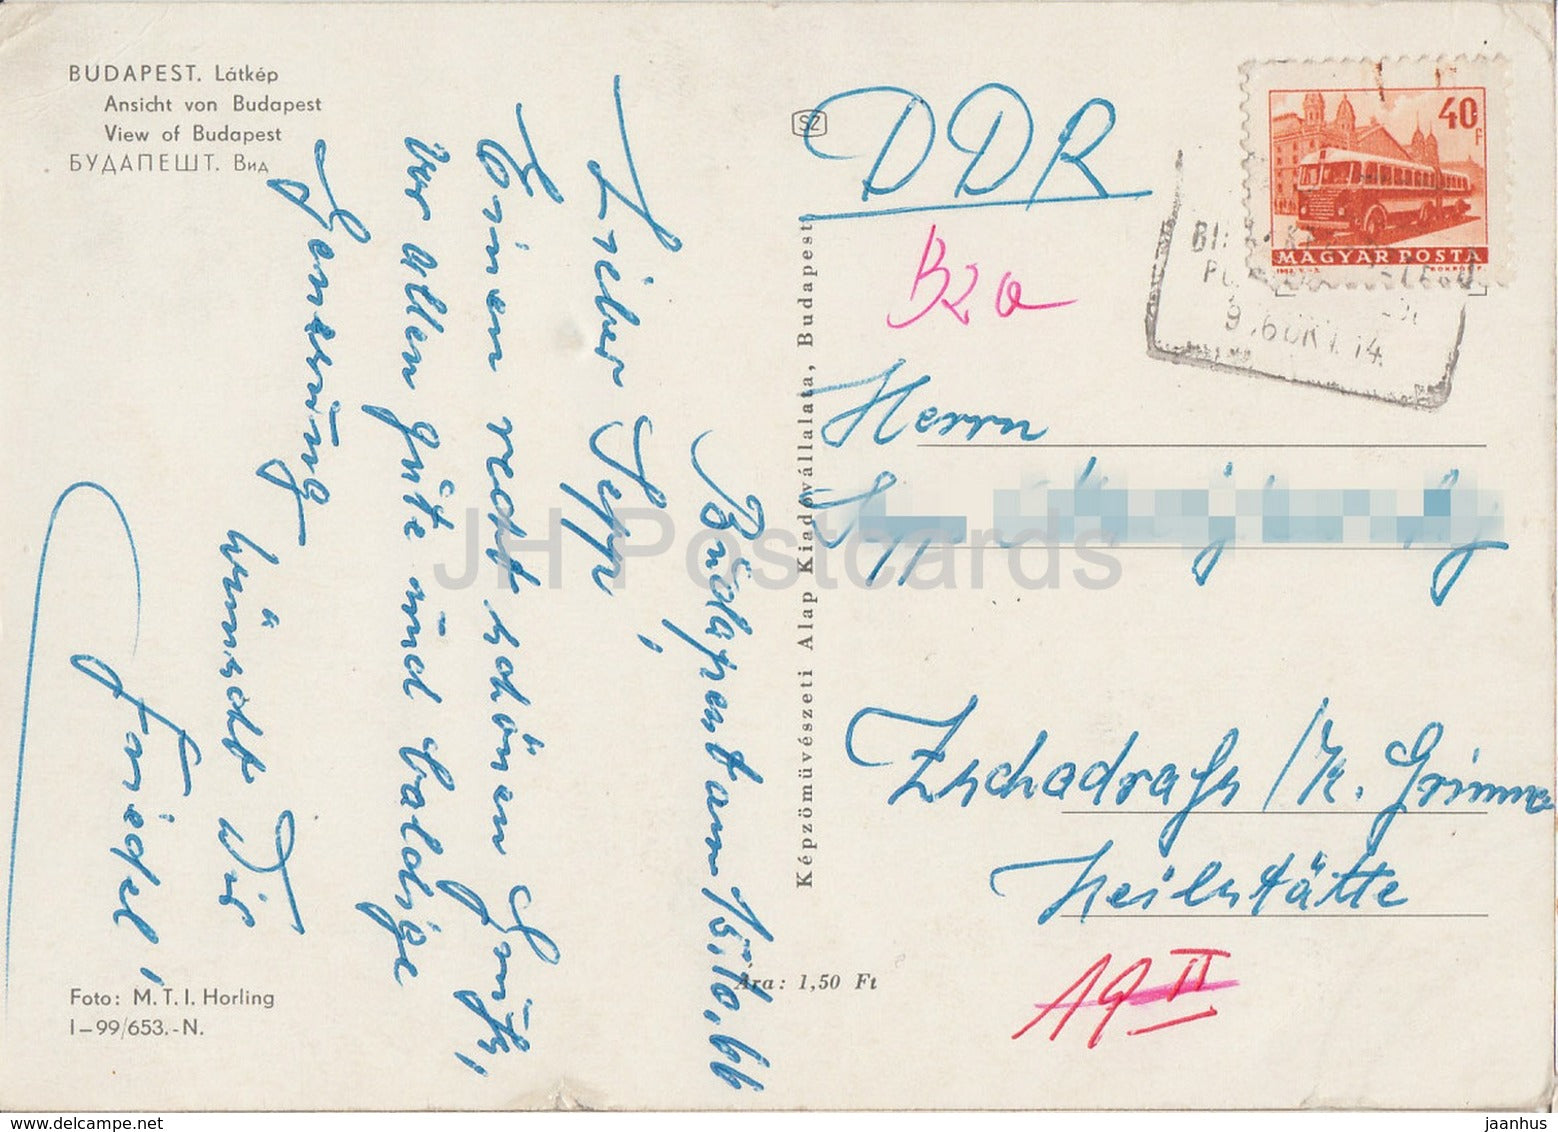 BUDAPEST. Látkép
Ansicht von Budapest
View of Budapest
БУДАПЕШТ. Вид
Budapest am 15.10.66
Lieber Sepp,
Einen recht schönen Gruß,
vor allen gute und baldige
Genesung
wünscht Dir
Friedel!
Foto: M. T. I. Horling
I-99/653.-N.
SZ
Képzőművészeti Alap Kiadóvállalata, Budapest
Ára: 1,50 Ft
DDR
B2a
40 F
MAGYAR POSTA
OKT. 14.
Herrn
Zschadraß / K. Grimma
Heilstätte
A9 II
JH Postcards
jaanhus